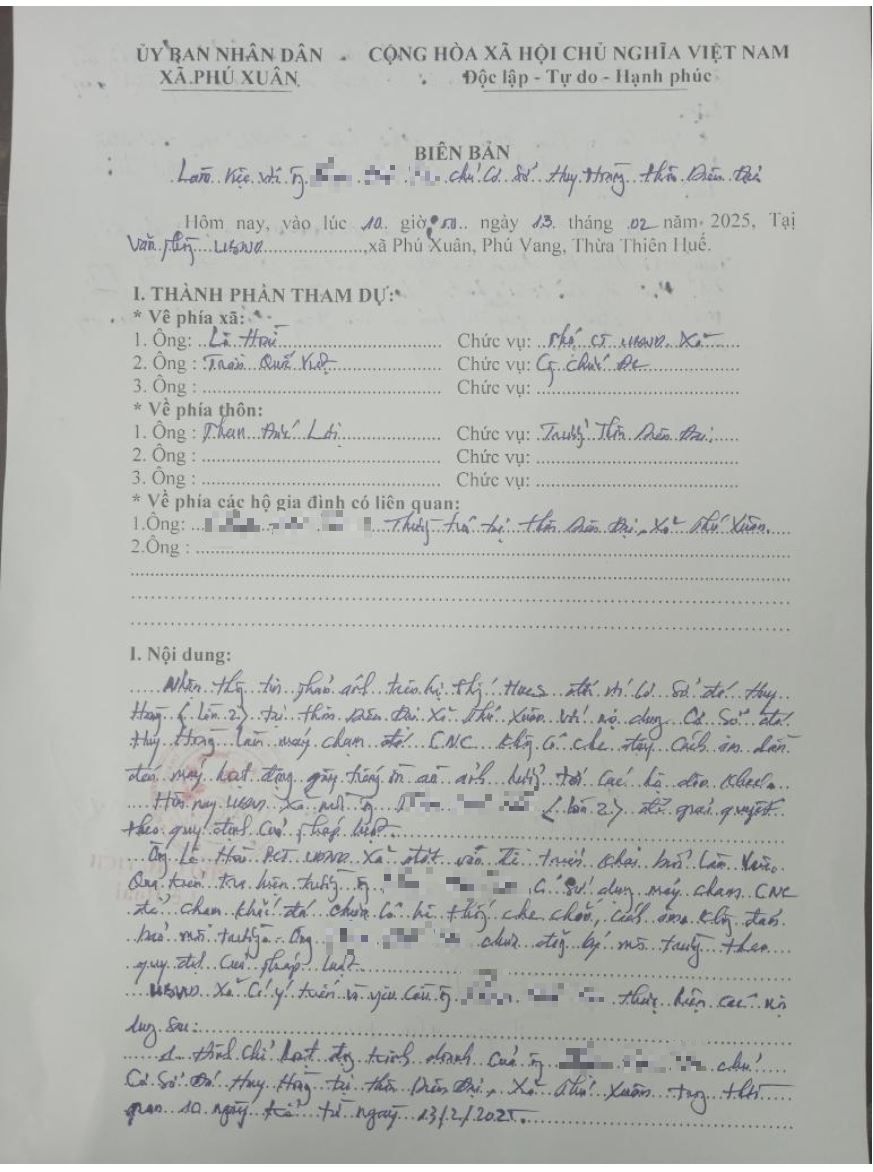 ỦY BAN NHÂN DÂN
XÃ PHÚ XUÂN
CỘNG HÒA XÃ HỘI CHỦ NGHĨA VIỆT NAM
Độc lập - Tự do - Hạnh phúc
BIÊN BẢN
Làm việc với ông chủ Cơ Sở Huy Hoàng thôn Diên Đại
Hôm nay, vào lúc 10 giờ 00 ngày 13 tháng 02 năm 2025, Tại
Văn phòng UBND, xã Phú Xuân, Phú Vang, Thừa Thiên Huế.
I. THÀNH PHẦN THAM DỰ:
* Về phía xã:
1. Ông: Lê Hoài Chức vụ: Phó CT UBND Xã
2. Ông : Trần Quốc Chức vụ: C chức ĐC
3. Ông : Chức vụ:
* Về phía thôn:
1. Ông : Phan Đức Lợi Chức vụ: Trưởng Thôn Diên Đại
2. Ông : Chức vụ:
3. Ông : Chức vụ:
* Về phía các hộ gia đình có liên quan:
1.Ông: Thường trú tại thôn Diên Đại, Xã Phú Xuân.
2.Ông :
I. Nội dung:
Nhận thông tin phản ánh trên hệ thống HueS đối với Cơ Sở đá Huy
Hoàng (lần 2) tại thôn Diên Đại Xã Phú Xuân với nội dung Cơ Sở đá
Huy Hoàng làm máy chạm đá CNC không có che đậy cách âm dẫn
đến máy hoạt động gây tiếng ồn ảnh hưởng tới các hộ dân khác.
Hôm nay UBND Xã mời ông (lần 2) để giải quyết
theo quy định của pháp luật.
Ông Lê Hoài PCT UBND Xã đặt vấn đề triển khai buổi làm việc.
Qua kiểm tra hiện trường ông có sử dụng máy chạm CNC
để chạm khắc đá chưa có hệ thống che chắn, cách âm không đảm
bảo môi trường. Ông chưa đăng ký môi trường theo
quy định của pháp luật.
UBND Xã có ý kiến và yêu cầu ông thực hiện các nội
dung sau:
1. đình chỉ hoạt động kinh doanh của ông chủ
Cơ Sở Đá Huy Hoàng tại thôn Diên Đại, Xã Phú Xuân trong thời
gian 10 ngày kể từ ngày 13/2/2025.